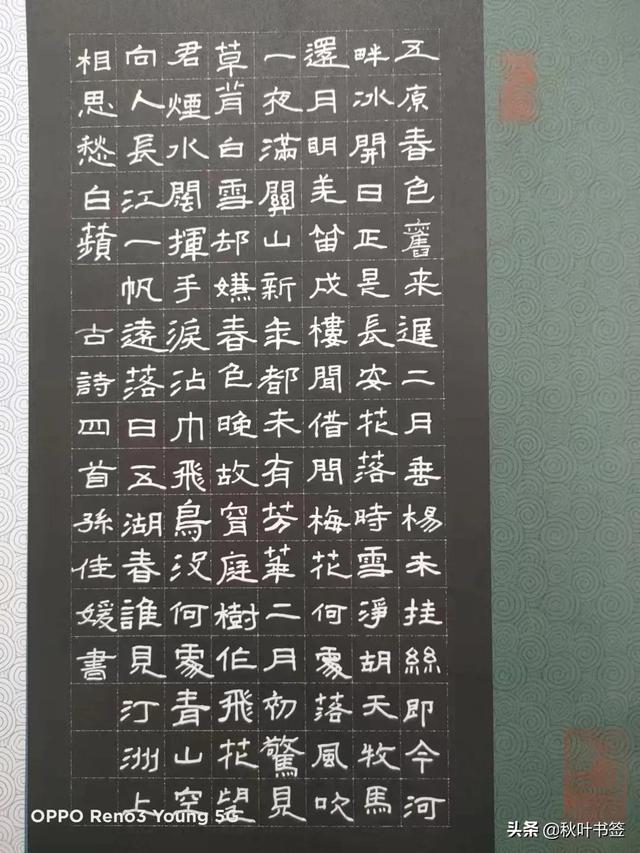 五原春色舊来遲二月垂楊未挂絲即今河
畔冰開日正是長安花落時雪淨胡天牧馬
還月明羌笛戍樓聞借問梅花何處落風吹
一夜滿關山新年都未有芳華二月初驚見
草芽白雪却嫌春色晚故穿庭樹作飛花望
君煙水闊揮手淚沾巾飛鳥没何處青山空
向人長江一帆遠落日五湖春誰見汀洲上
相思愁白蘋 古詩四首孫佳媛書
OPPO Reno3 Young 5G
头条 @秋叶书签